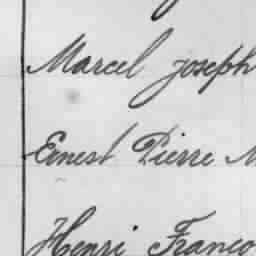 Marcel Joseph
Ernest Pierre M
Henri Franço